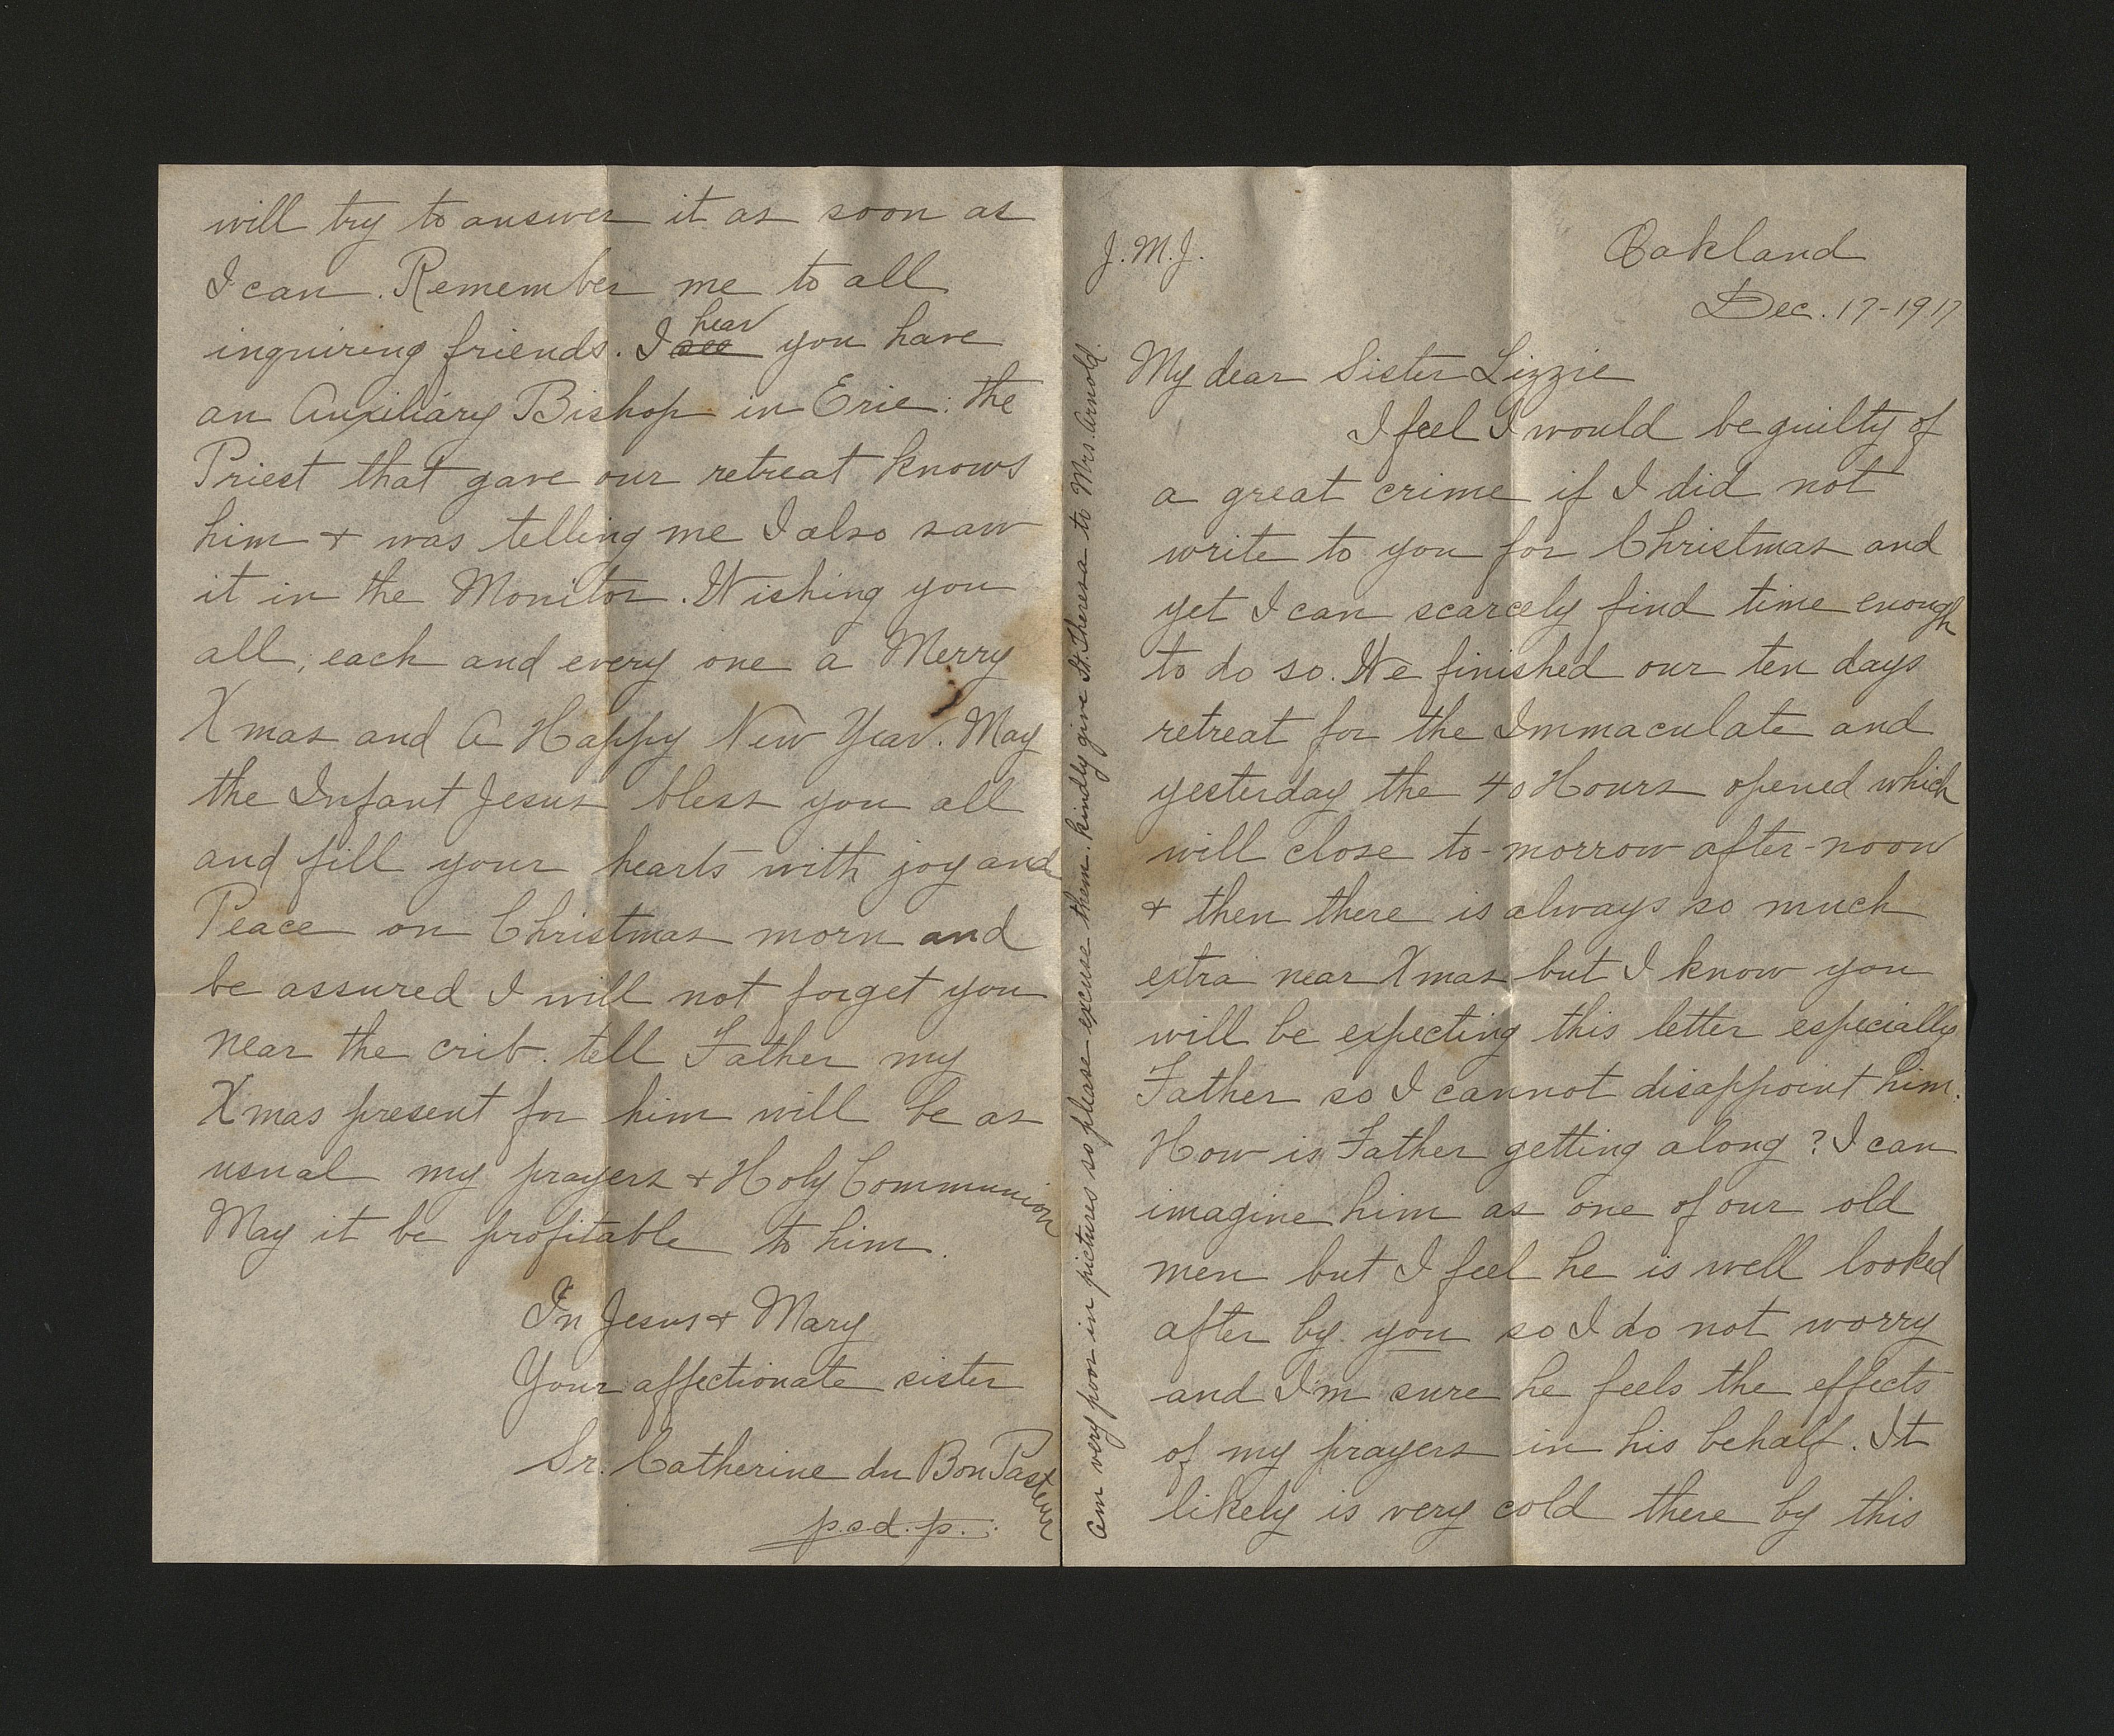 J.M.J.
Oakland
Dec. 17-1917
My dear Sister Lizzie
I feel I would be guilty of
a great crime if I did not
write to you for Christmas and
yet I can scarcely find time enough
to do so. We finished our ten days
retreat for the Immaculate and
yesterday the 40 Hours opened which
will close to-morrow after-noon
& then there is always so much
extra near Xmas but I know you
will be expecting this letter especially
Father so I cannot disappoint him.
How is Father getting along? I can
imagine him as one of our old
men but I feel he is well looked
after by you so I do not worry
and I'm sure he feels the effects
of my prayers in his behalf. It
likely is very cold there by this
will try to answer it as soon as
I can. Remember me to all
inquiring friends. I see hear you have
an Auxiliary Bishop in Erie: the
Priest that gave our retreat knows
him & was telling me I also saw
it in the Monitor. Wishing you
all, each and every one a Merry
Xmas and A Happy New Year. May
the Infant Jesus bless you all
and fill your hearts with joy and
Peace on Christmas morn and
be assured I will not forget you
near the crib. tell Father my
Xmas present for him will be as
usual my prayers & Holy Communion
May it be profitable to him.
In Jesus & Mary
Your affectionate sister
Sr. Catherine du Bon Pasteur
p.s.d.p.
am very poor in pictures so please excuse them. kindly give St. Theresa to Mrs. Arnold.